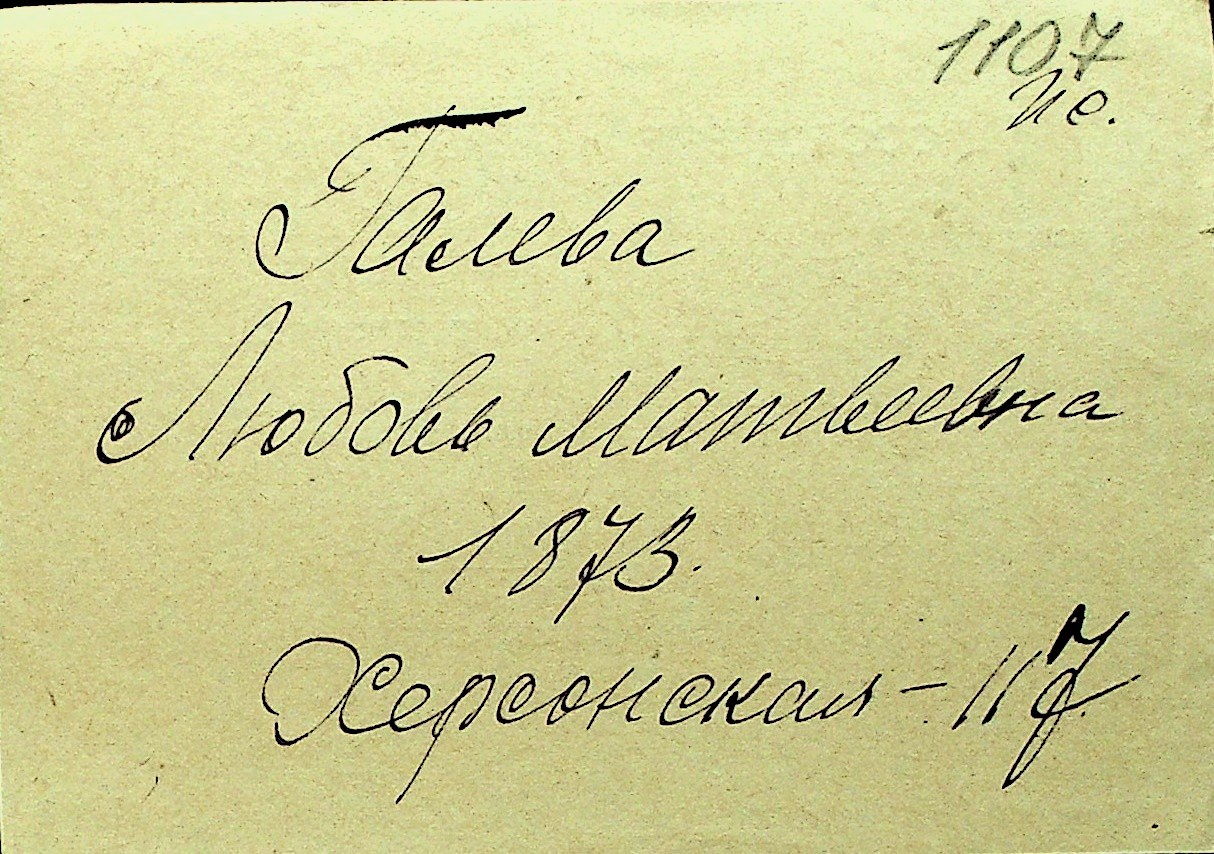 1107
ис.
Галева
Любовь Матвеевна
1873.
Херсонская - 117